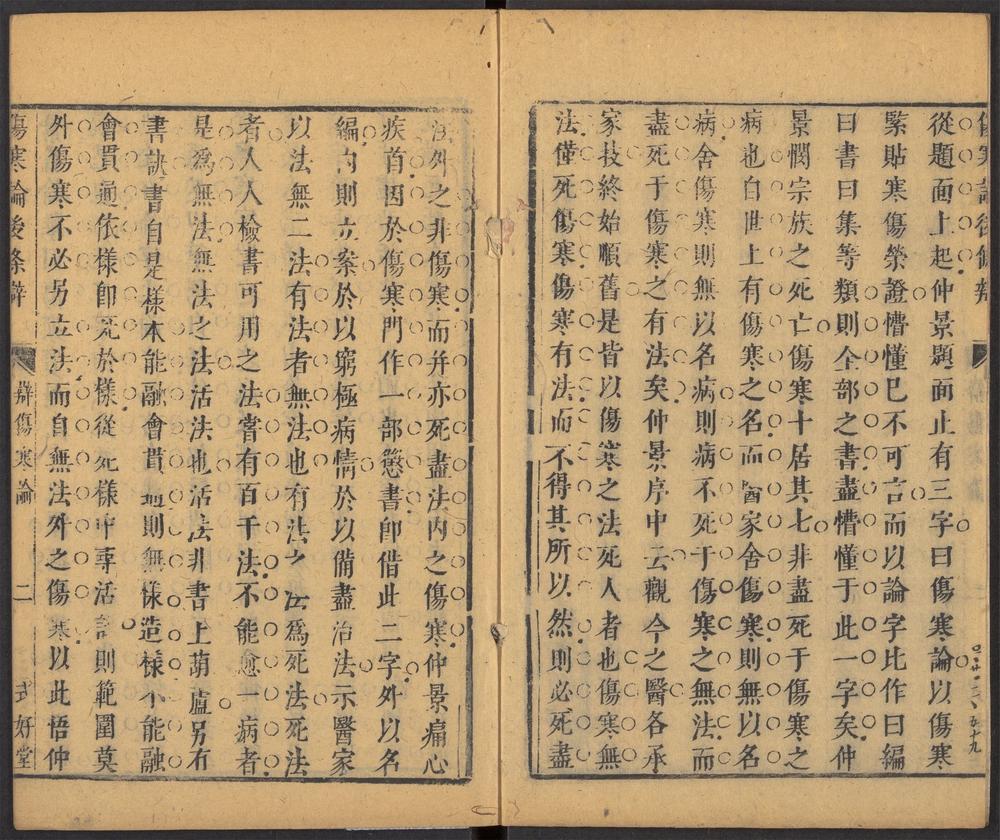 從題面上起仲景題面止有三字曰傷寒論以傷寒
緊貼寒傷榮證懵懂已不可言而以論字比作曰編
曰書曰集等類則全部之書盡懵懂于此一字矣仲
景憫宗族之死亡傷寒十居其七非盡死于傷寒之
病也自世上有傷寒之名而醫家舍傷寒則無以名
病舍傷寒則無以名病則病不死于傷寒之無法而
盡死于傷寒之有法矣仲景序中云觀今之醫各承
家技終始順舊是皆以傷寒之法死人者也傷寒無
法僅死傷寒傷寒有法而不得其所以然則必死盡
法外之非傷寒而并亦死盡法內之傷寒仲景痛心
疾首因於傷寒門作一部懲書卽借此二字外以名
編內則立案於以窮極病情於以備盡治法示醫家
以法無二法有法者無法也有法之法爲死法死法
者人人檢書可用之法嘗有百千法不能愈一病者
是爲無法無法之法活法也活法非書上葫蘆另有
書訣書自是樣本能融會貫通則無樣造樣不能融
會貫通依樣卽死於樣從死樣中專活則範圍莫
外傷寒不必另立法而自無法外之傷寒以此悟仲
傷寒論後條辯
辯傷寒論
二
式好堂